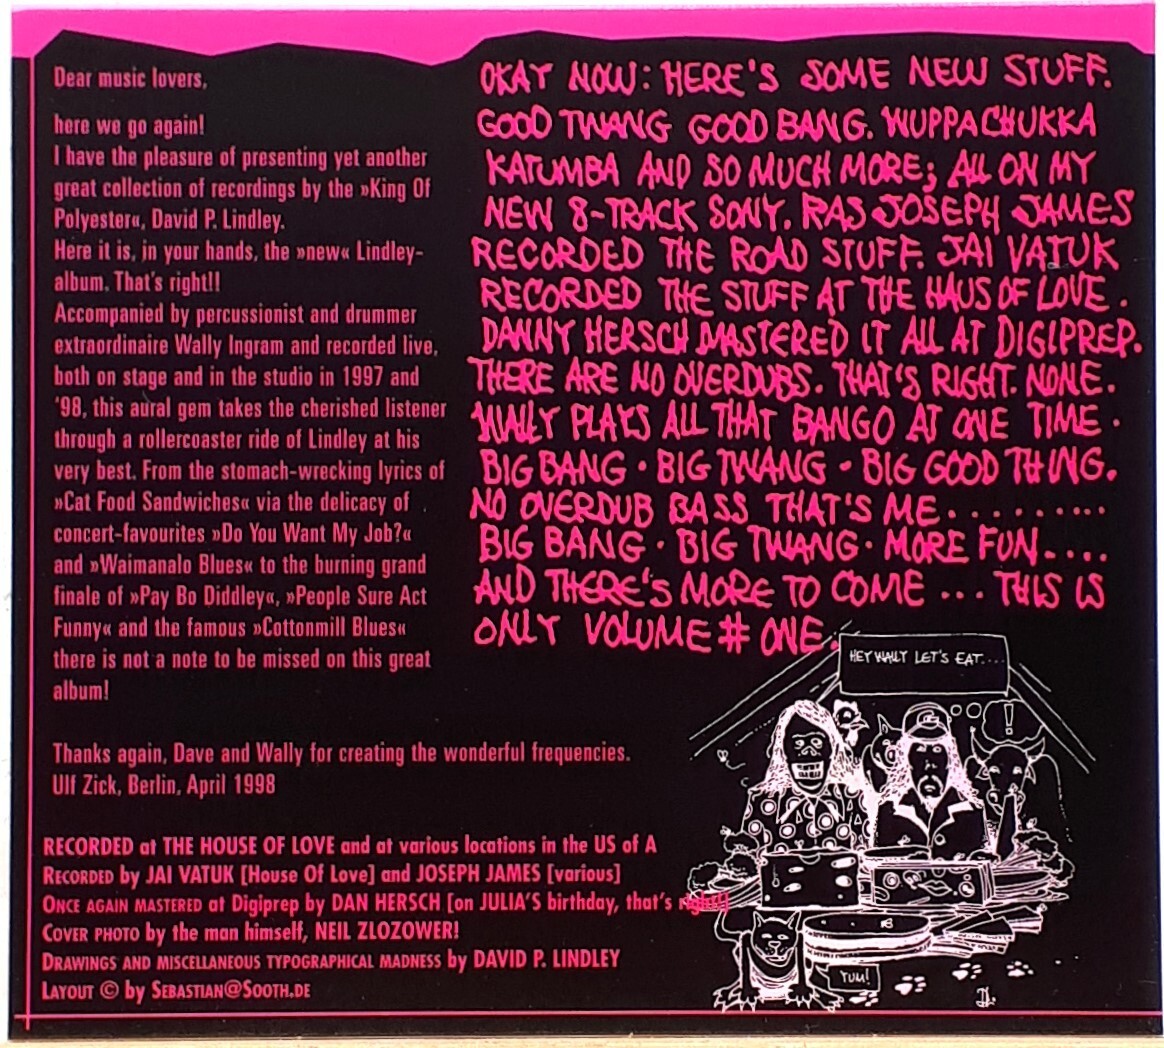 Dear music lovers,
here we go again!
I have the pleasure of presenting yet another
great collection of recordings by the »King Of
Polyester«, David P. Lindley.
Here it is, in your hands, the »new« Lindley-
album. That's right!!
Accompanied by percussionist and drummer
extraordinaire Wally Ingram and recorded live,
both on stage and in the studio in 1997 and
'98, this aural gem takes the cherished listener
through a rollercoaster ride of Lindley at his
very best. From the stomach-wrecking lyrics of
»Cat Food Sandwiches« via the delicacy of
concert-favourites »Do You Want My Job?«
and »Waimanalo Blues« to the burning grand
finale of »Pay Bo Diddley«, »People Sure Act
Funny« and the famous »Cottonmill Blues«
there is not a note to be missed on this great
album!
Thanks again, Dave and Wally for creating the wonderful frequencies.
Ulf Zick, Berlin, April 1998
OKAY NOW: HERE'S SOME NEW STUFF.
GOOD TWANG GOOD BANG. WUPPACHUKKA
KATUMBA AND SO MUCH MORE; ALL ON MY
NEW 8-TRACK SONY. RAS JOSEPH JAMES
RECORDED THE ROAD STUFF. JAI VATUK
RECORDED THE STUFF AT THE HAUS OF LOVE.
DANNY HERSCH MASTERED IT ALL AT DIGIPREP.
THERE ARE NO OVERDUBS. THAT'S RIGHT. NONE.
WALLY PLAYS ALL THAT BANGO AT ONE TIME.
BIG BANG · BIG TWANG · BIG GOOD THING.
NO OVERDUB BASS THAT'S ME..........
BIG BANG · BIG TWANG · MORE FUN....
AND THERE'S MORE TO COME... THIS IS
ONLY VOLUME # ONE.
HEY WALLY LET'S EAT....
!
YUM!
DL.
RECORDED at THE HOUSE OF LOVE and at various locations in the US of A
RECORDED by JAI VATUK [House Of Love] and JOSEPH JAMES [various]
ONCE AGAIN MASTERED at Digiprep by DAN HERSCH [on JULIA'S birthday, that's right!]
COVER PHOTO by the man himself, NEIL ZLOZOWER!
DRAWINGS AND MISCELLANEOUS TYPOGRAPHICAL MADNESS by DAVID P. LINDLEY
LAYOUT © by SEBASTIAN@SOOTH.DE